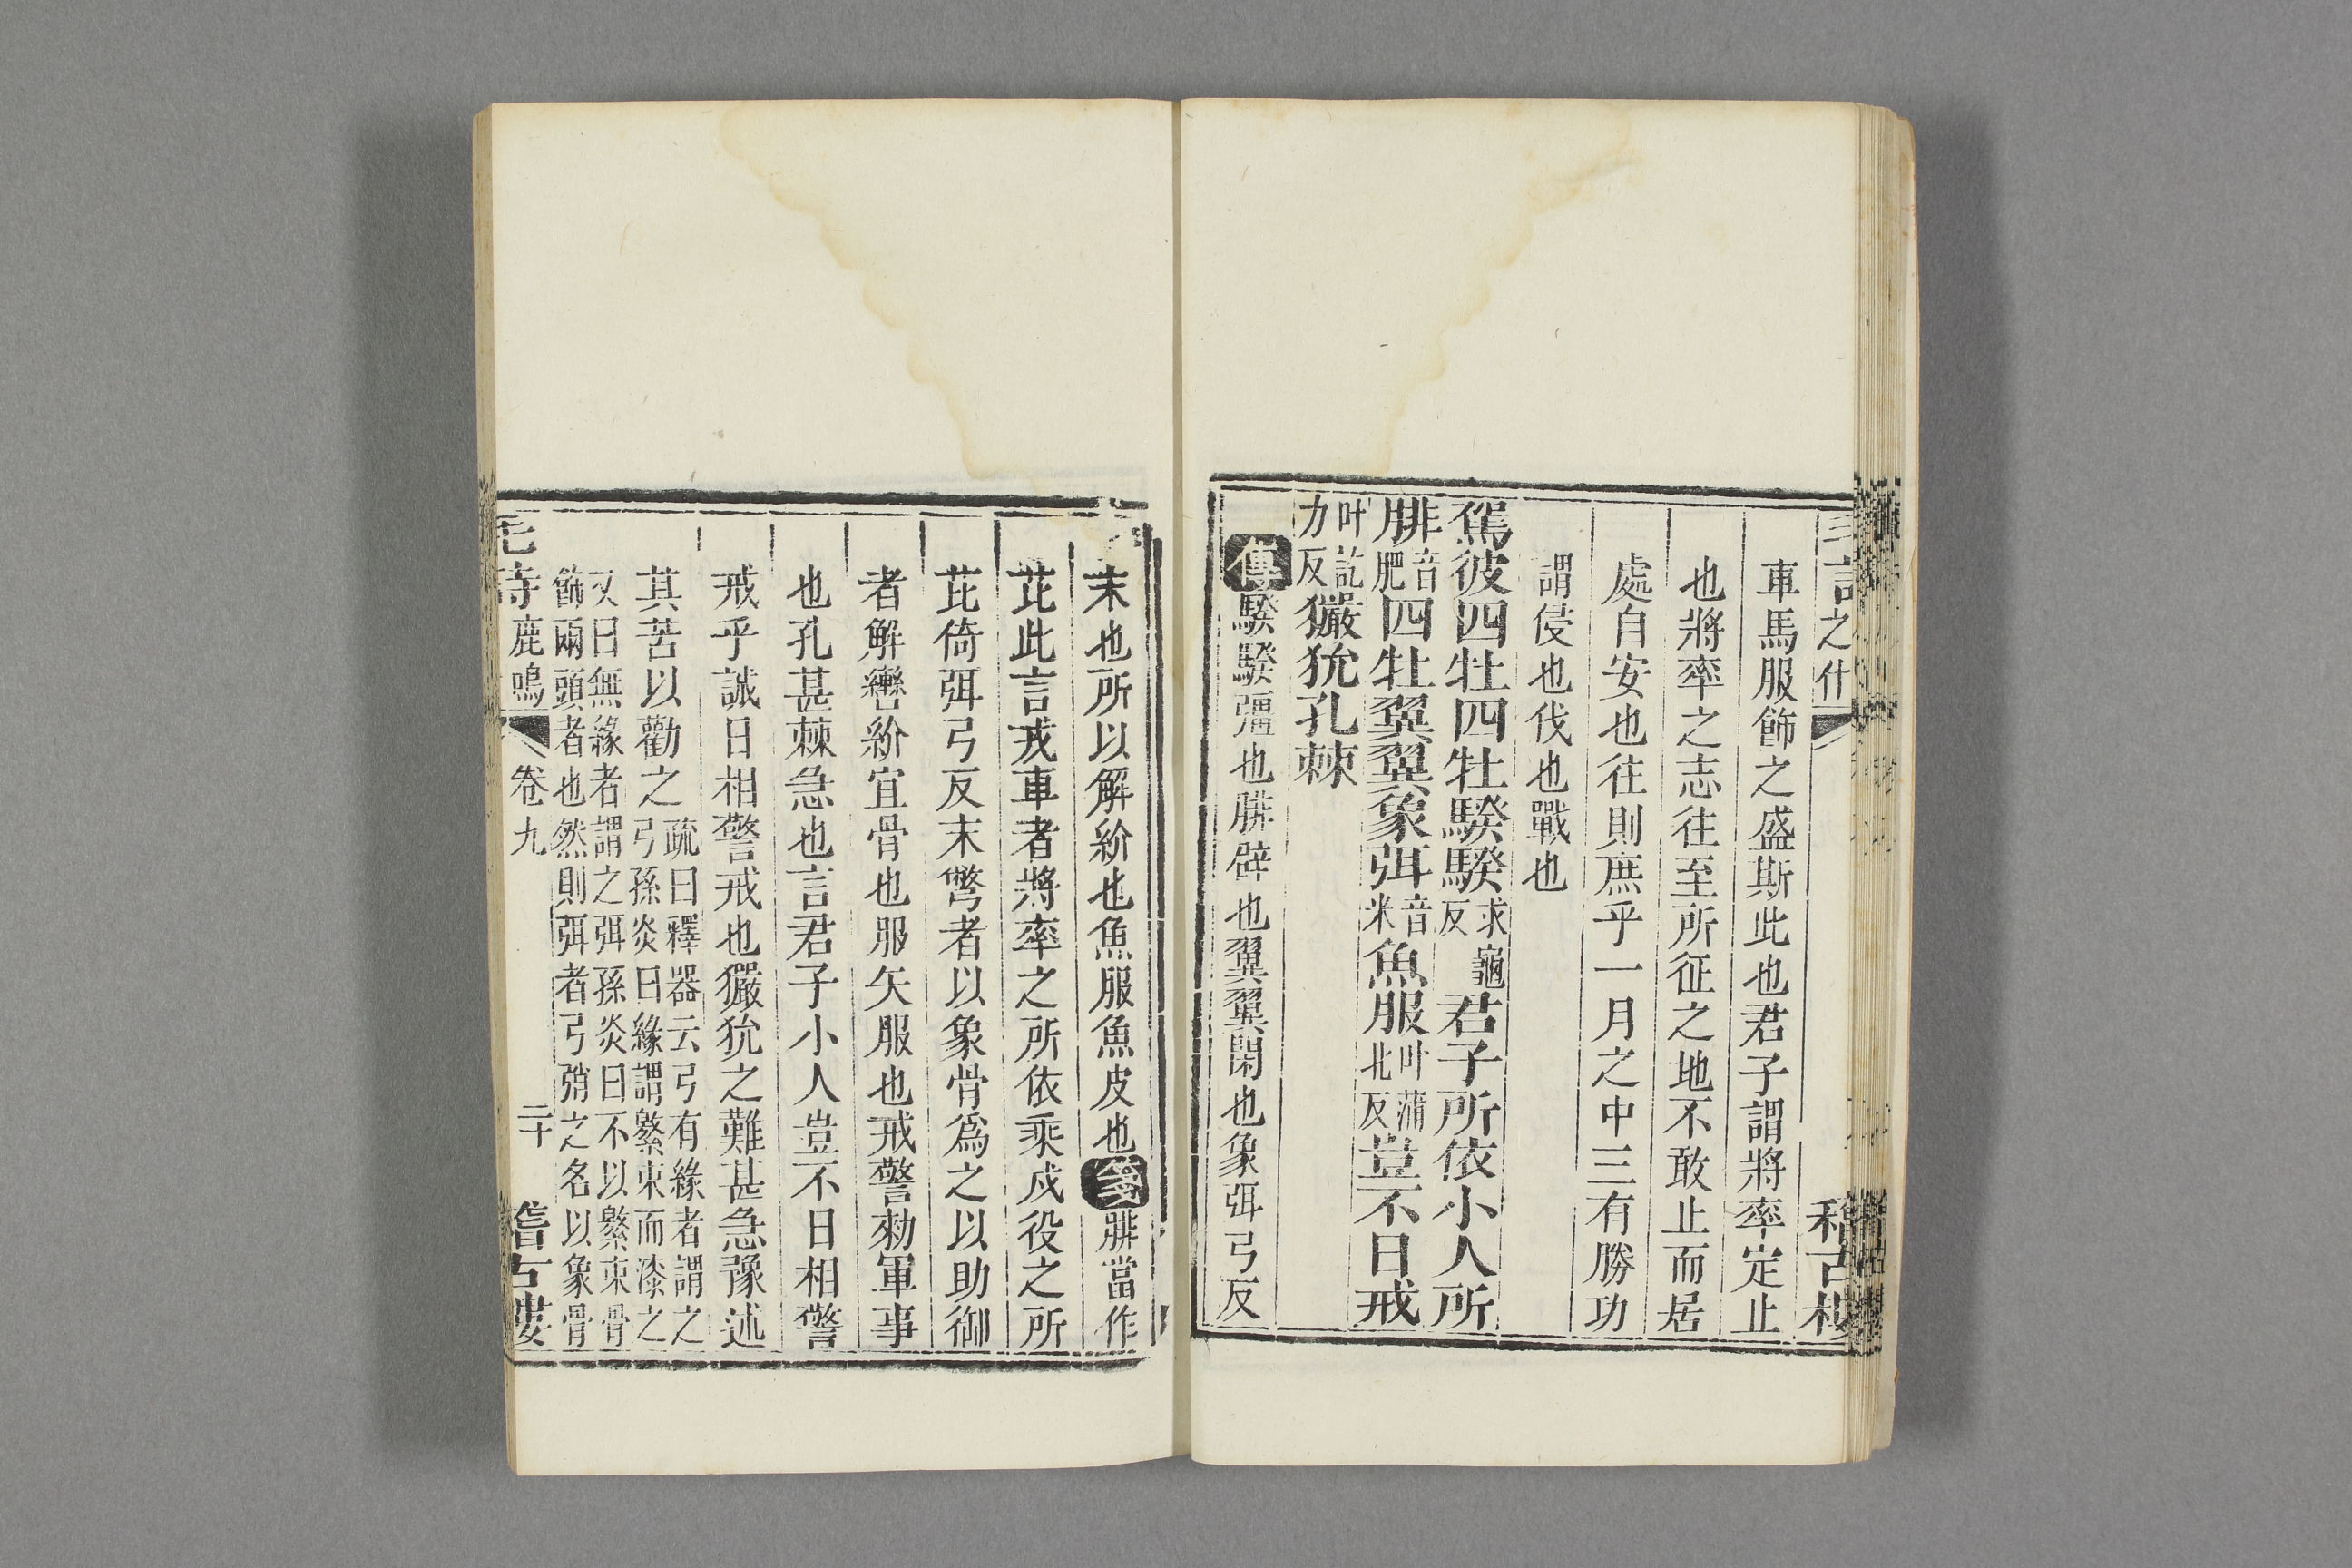 之什
稽古樓
車馬服飾之盛斯此也君子謂將率定止
也將率之志往至所征之地不敢止而居
處自安也往則庶乎一月之中三有勝功
謂侵也伐也戰也
駕彼四牡四牡騤騤求龜反君子所依小人所
腓音肥四牡翼翼象弭音米魚服叶蒲北反豈不日戒
叶訖力反玁狁孔棘
傳騤騤彊也腓辟也翼翼閑也象弭弓反
末也所以解紒也魚服魚皮也箋腓當作
芘此言戎車者將率之所依乘戍役之所
芘倚弭弓反末彆者以象骨爲之以助御
者解轡紒宜骨也服矢服也戒警勑軍事
也孔甚棘急也言君子小人豈不日相警
戒乎誠日相警戒也玁狁之難甚急豫述
其苦以勸之疏曰釋器云弓有緣者謂之
弓孫炎曰緣謂繁束而漆之
又曰無緣者謂之弭孫炎曰不以繁束骨
飾兩頭者也然則弭者弓弰之名以象骨
毛詩鹿鳴 卷九 二十 稽古樓